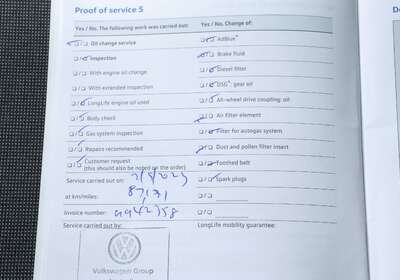 Proof of service 5
Yes / No. The following work was carried out:
Yes / No. Change of:
Oil change service
AdBlue®
Inspection
Brake fluid
With engine oil change
Diesel filter
With extended inspection
DSG®: gear oil
LongLife engine oil used
All-wheel drive coupling: oil
Body check
Air filter element
Gas system inspection
Filter for autogas system
Repairs recommended
Dust and pollen filter insert
Customer request
(this should also be noted on the order)
Toothed belt
Service carried out on:
Spark plugs
at km/miles: 87131
Invoice number: 9942358
Service carried out by:
LongLife mobility guarantee:
Volkswagen Group